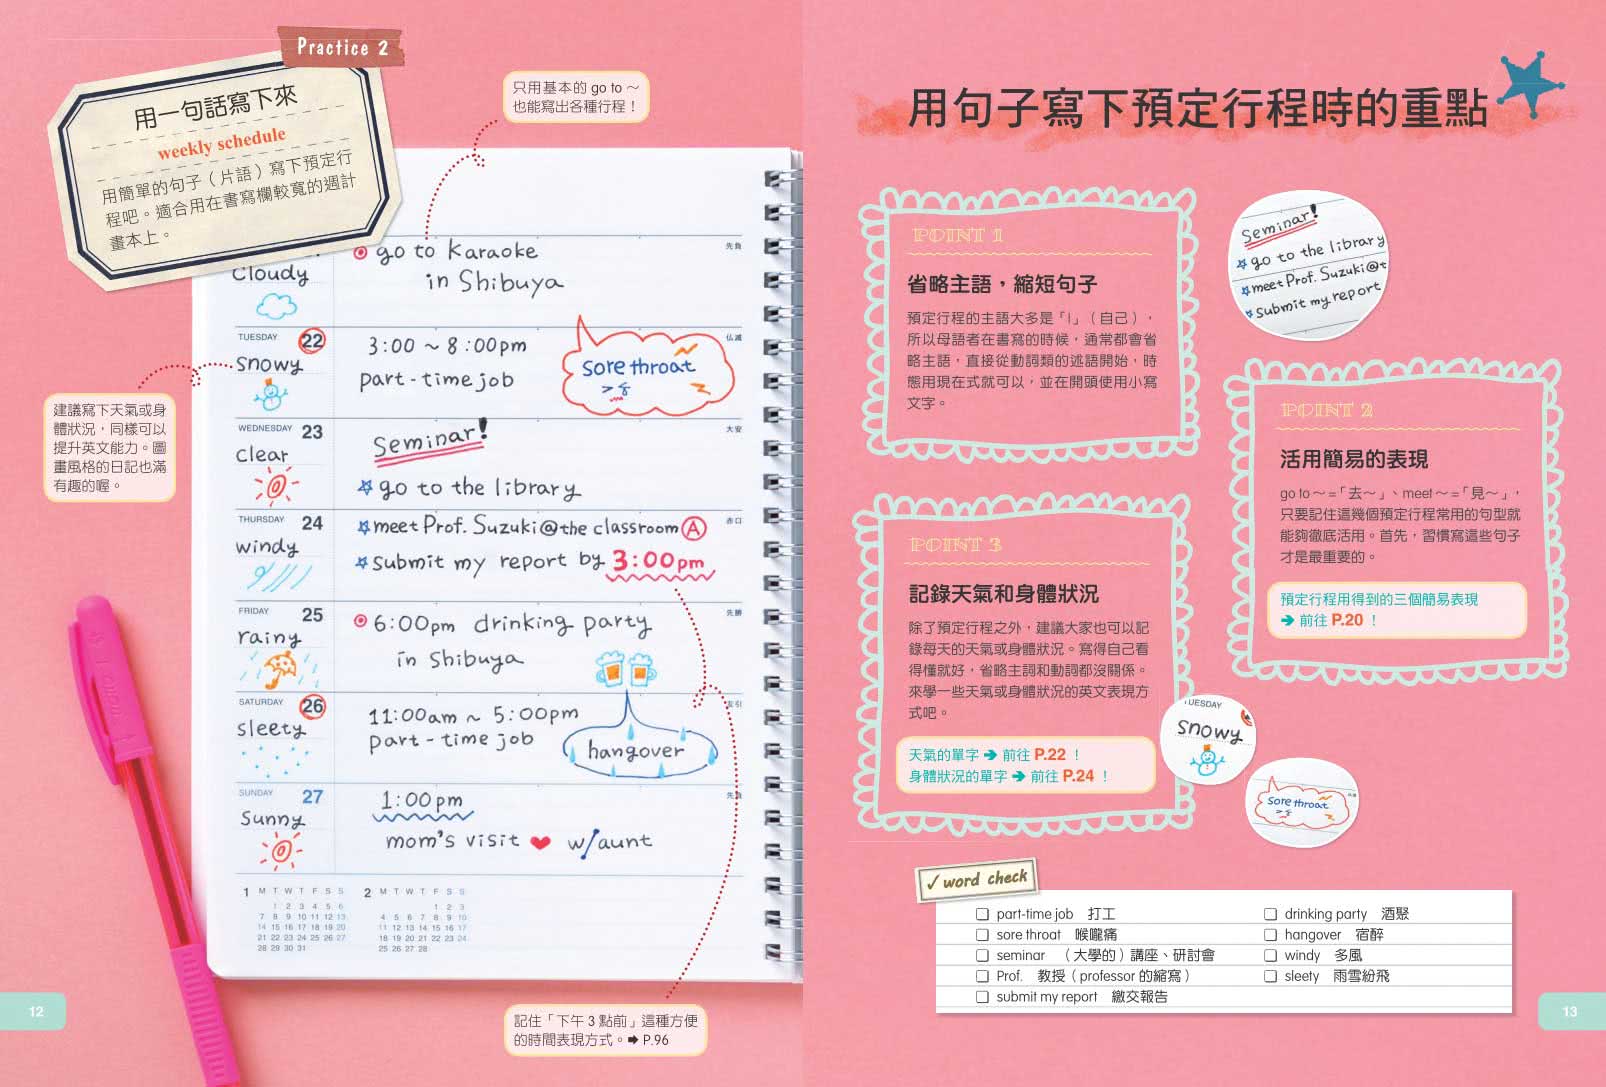 Practice 2
用一句話寫下來
weekly schedule
用簡單的句子（片語）寫下預定行
程吧。適合用在書寫欄較寬的週計
畫本上。
只用基本的 go to ～
也能寫出各種行程！
Cloudy
go to Karaoke
in Shibuya
先負
TUESDAY 22
snowy
3:00 ～ 8:00pm
part-time job
sore throat
仏滅
建議寫下天氣或身
體狀況，同樣可以
提升英文能力。圖
畫風格的日記也滿
有趣的喔。
WEDNESDAY 23
clear
Seminar!
go to the library
大安
THURSDAY 24
windy
meet Prof. Suzuki@the classroom A
submit my report by 3:00pm
赤口
FRIDAY 25
rainy
6:00pm drinking party
in Shibuya
先勝
SATURDAY 26
sleety
11:00am ～ 5:00pm
part-time job
hangover
友引
SUNDAY 27
Sunny
1:00pm
mom's visit ♥ w/aunt
先負
1 M T W T F S S
1 2 3 4 5 6
7 8 9 10 11 12 13
14 15 16 17 18 19 20
21 22 23 24 25 26 27
28 29 30 31
2 M T W T F S S
1 2 3
4 5 6 7 8 9 10
11 12 13 14 15 16 17
18 19 20 21 22 23 24
25 26 27 28
記住「下午 3 點前」這種方便
的時間表現方式。➡ P.96
12
用句子寫下預定行程時的重點
POINT 1
省略主語，縮短句子
預定行程的主語大多是「I」（自己），
所以母語者在書寫的時候，通常都會省
略主語，直接從動詞類的述語開始，時
態用現在式就可以，並在開頭使用小寫
文字。
Seminar!
go to the library
meet Prof. Suzuki@t
submit my report
POINT 2
活用簡易的表現
go to ～ =「去～」、meet ～ =「見～」，
只要記住這幾個預定行程常用的句型就
能夠徹底活用。首先，習慣寫這些句子
才是最重要的。
預定行程用得到的三個簡易表現
➔ 前往 P.20 ！
POINT 3
記錄天氣和身體狀況
除了預定行程之外，建議大家也可以記
錄每天的天氣或身體狀況。寫得自己看
得懂就好，省略主詞和動詞都沒關係。
來學一些天氣或身體狀況的英文表現方
式吧。
天氣的單字 ➔ 前往 P.22 ！
身體狀況的單字 ➔ 前往 P.24 ！
UESDAY
snowy
sore throat
✓ word check
❏ part-time job 打工
❏ sore throat 喉嚨痛
❏ seminar （大學的）講座、研討會
❏ Prof. 教授（professor 的縮寫）
❏ submit my report 繳交報告
❏ drinking party 酒聚
❏ hangover 宿醉
❏ windy 多風
❏ sleety 雨雪紛飛
13